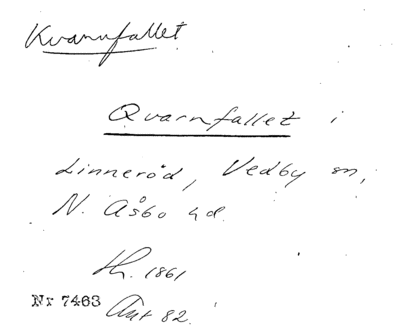 Kvarnfallet
Qvarnfallet i
Linneröd, Vedby sn,
N. Åsbo hd.
Th. 1861
Nr 7463 Ant 82.